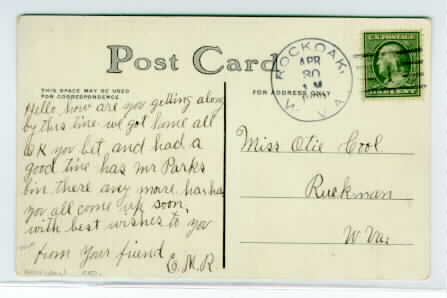 Post Card
THIS SPACE MAY BE USED
FOR CORRESPONDENCE
FOR ADDRESS ONLY
ROCKOAK,
APR
30
M
W. VA.
U.S. POSTAGE
Hello how are you getting along
by this time we got home all
OK you bet, and had a
good time has Mr Parks
bin there any more ha ha
you all come up soon,
with best wishes to you
from Your friend
E. M. R.
Miss Otie Cool
Ruckman
W Va.